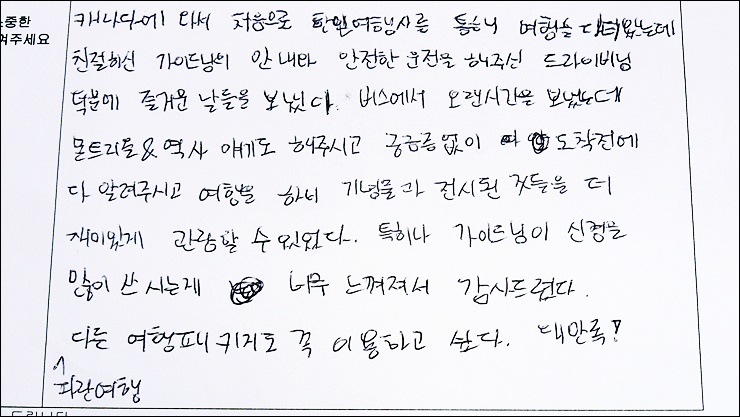 소중한
여주세요
캐나다에 와서 처음으로 한인여행사를 통해서 여행을 다녀왔는데
친절하신 가이드님의 안내와 안전한 운전을 해주신 드라이버님
덕분에 즐거운 날들을 보냈다. 버스에서 오랜시간을 보냈는데
몬트리올 & 역사 얘기도 해주시고 궁금증없이 도착전에
다 알려주시고 여행을 하니 기념물과 전시된 것들을 더
재미있게 관람할 수 있었다. 특히나 가이드님이 신경을
많이 쓰시는게 너무 느껴져서 감사드렸다.
다른 여행패키지도 꼭 이용하고 싶다. 대만족!
파란여행
드립니다